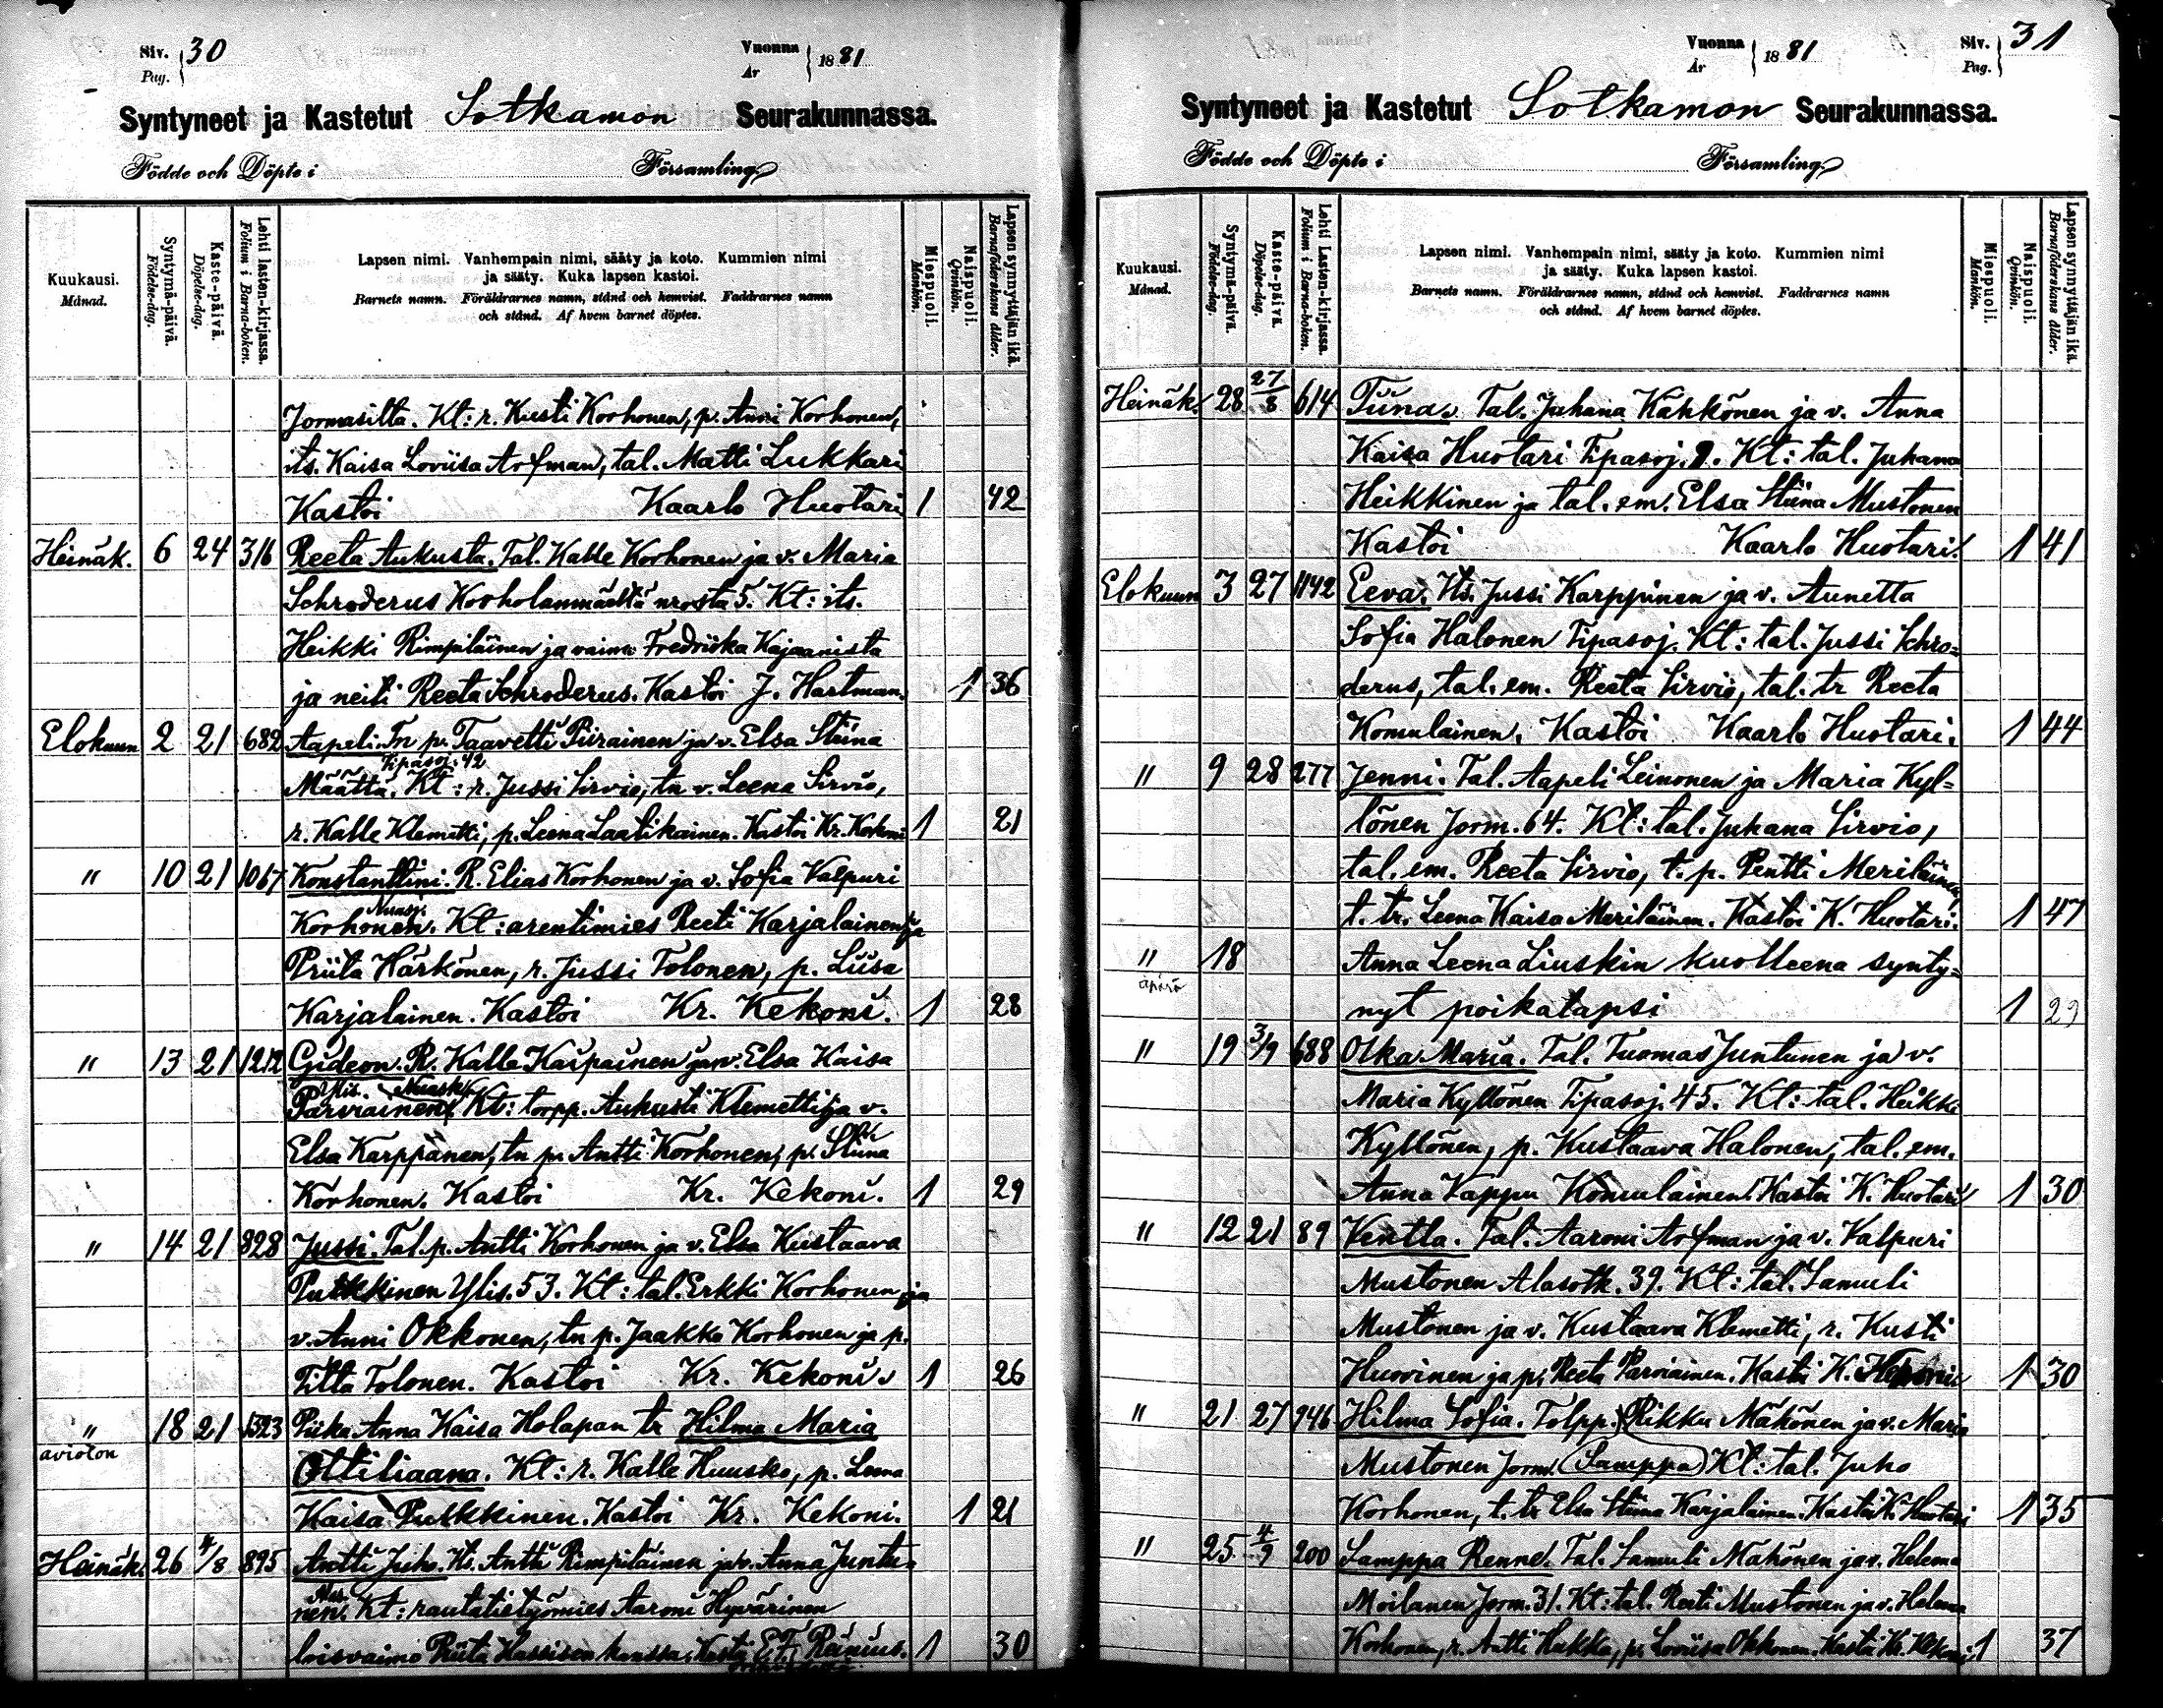 Siv. 30
Pag.
Vuonna 1881
År
Syntyneet ja Kastetut Sotkamon Seurakunnassa.
Födde och Döpte i Församling
Kuukausi. Månad.
Syntymä-päivä. Födelse-dag.
Kaste-päivä. Döpelse-dag.
Lehti lasten-kirjassa. Folium i Barna-boken.
Lapsen nimi. Vanhempain nimi, sääty ja koto. Kummien nimi
ja sääty. Kuka lapsen kastoi.
Barnets namn. Föräldrarnes namn, stånd och hemvist. Faddrarnes namn
och stånd. Af hvem barnet döptes.
Miespuoli. Mankön.
Naispuoli. Qvinkön.
Lapsen synnyttäjän ikä. Barnaföderskans ålder.
Jormasilta. Kt: r. Kusti Korhonen, p. Anni Korhonen,
its. Kaisa Loviisa Arfman, tal. Matti Lukkari
Kastoi Kaarlo Huotari 1 42
Heinäk. 6 24 316 Reeta Aukusta. Tal. Kalle Korhonen ja v. Maria
Schroderus Korholanmäeltä nrosta 5. Kt: its.
Heikki Rimpiläinen ja vaimo Fredriika Kajaanista
ja neiti Reeta Schroderus. Kastoi J. Hartman. 1 36
Elokuun 2 21 682 Aapeli. Tn p. Taavetti Piirainen ja v. Elsa Stiina
Tipasoj. 42
Määttä. Kt: r. Jussi Sirvio, tn v. Leena Sirvio,
r. Kalle Klemetti, p. Leena Laatikainen. Kastoi Kr. Kekoni 1 21
" 10 21 1067 Konstanttini. R. Elias Korhonen ja v. Sofia Valpuri
Korhonen. Kt: arentimies Reeti Karjalainen ja
Priita Härkönen, r. Jussi Tolonen, p. Liisa
Karjalainen. Kastoi Kr. Kekoni. 1 28
" 13 21 1212 Gideon. R. Kalle Kaipainen ja v. Elsa Kaisa
Parviainen, Kt: torpp. Aukusti Klemetti ja v.
Elsa Karppanen, tn p. Antti Korhonen, p. Stiina
Korhonen. Kastoi Kr. Kekoni. 1 29
" 14 21 828 Jussi. Tal. p. Antti Korhonen ja v. Elsa Kustaava
Pulkkinen Ylis. 53. Kt: tal. Erkki Korhonen ja
v. Anni Okkonen, tn p. Jaakko Korhonen ja p.
Titta Tolonen. Kastoi Kr. Kekoni. 1 26
" 18 21 1323 Piika Anna Kaisa Holapan tr Hilma Maria
avioton
Ottiliaana. Kt: r. Kalle Huusko, p. Leena
Kaisa Pulkkinen. Kastoi Kr. Kekoni. 1 21
Heinäk. 26 4/8 895 Antti Juho. Its. Antti Rimpiläinen ja v. Anna Juntu-
nen. Kt: rautatietyömies Aaroni Hyvärinen
loisvaimo Riita Hassisen kanssa. Kastoi E. F. Reinius. 1 30
Vuonna 1881
År
Siv. 31
Pag.
Syntyneet ja Kastetut Sotkamon Seurakunnassa.
Födde och Döpte i Församling
Kuukausi. Månad.
Syntymä-päivä. Födelse-dag.
Kaste-päivä. Döpelse-dag.
Lehti Lasten-kirjassa. Folium i Barna-boken.
Lapsen nimi. Vanhempain nimi, sääty ja koto. Kummien nimi
ja sääty. Kuka lapsen kastoi.
Barnets namn. Föräldrarnes namn, stånd och hemvist. Faddrarnes namn
och stånd. Af hvem barnet döptes.
Miespuoli. Mankön.
Naispuoli. Qvinkön.
Lapsen synnyttäjän ikä. Barnaföderskans ålder.
Heinäk. 28 27/8 614 Tiina. Tal. Juhana Kähkönen ja v. Anna
Kaisa Huotari Tipasoj. 9. Kt: tal. Juhana
Heikkinen ja tal. em. Elsa Stiina Mustonen
Kastoi Kaarlo Huotari. 1 41
Elokuun 3 27 1142 Eeva. Its. Jussi Karppinen ja v. Aunetta
Sofia Halonen Tipasoj. Kt: tal. Jussi Schro=
derus, tal. em. Reeta Sirvio, tal. tr Reeta
Komulainen. Kastoi Kaarlo Huotari. 1 44
" 9 28 277 Jenni. Tal. Aapeli Leinonen ja Maria Kyl=
lönen Jorm. 64. Kt: tal. Juhana Sirvio,
tal. em. Reeta Sirvio, t. p. Pentti Meriläinen,
t. tr. Leena Kaisa Meriläinen. Kastoi K. Huotari. 1 47
" 18 Anna Leena Liuskin kuolleena synty=
äpärä
nyt poikalapsi 1 29
" 19 3/9 688 Olka Maria. Tal. Tuomas Juntunen ja v.
Maria Kyllönen Tipasoj. 45. Kt: tal. Heikki
Kyllönen, p. Kustaava Halonen, tal. em.
Anna Vappu Komulainen. Kastoi K. Huotari 1 30
" 12 21 89 Ventla. Tal. Aaroni Arfman ja v. Valpuri
Mustonen Alasotk. 39. Kt: tal. Samuli
Mustonen ja v. Kustaava Klemetti, r. Kusti
Huovinen ja p. Reeta Parviainen. Kastoi K. 1 30
" 21 27 946 Hilma Sofia. Tolpp. Rikku Mähönen ja v. Maria
Mustonen Jorm. (Samppa) Kt: tal. Juho
Korhonen, t. tr Elsa Stiina Karjalainen. Kastoi K. Huotari 1 35
" 25 4/9 200 Samppa Renne. Tal. Samuli Mähönen ja v. Helena
Moilanen Jorm. 31. Kt: tal. Reeti Mustonen ja v. Helena
Korhonen, r. Antti Hukka, p. Loviisa Okkonen. Kastoi Kr. Kekoni. 1 37